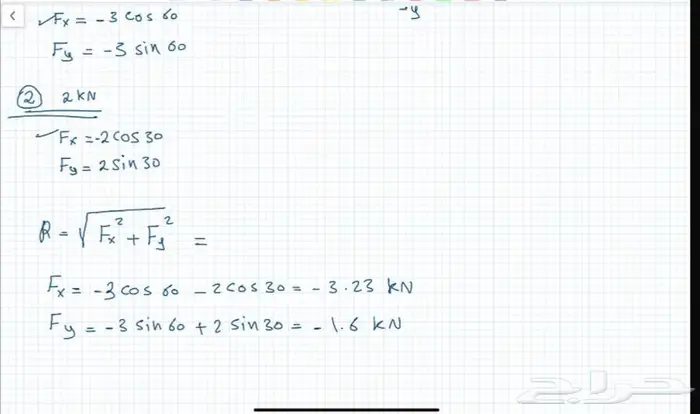 <
✓Fx = -3 cos 60
-y
Fy = -3 sin 60
② 2 kN
✓Fx = -2 cos 30
Fy = 2 sin 30
R = √Fx² + Fy² =
Fx = -3 cos 60 - 2 cos 30 = -3.23 kN
Fy = -3 sin 60 + 2 sin 30 = -1.6 kN
حراج